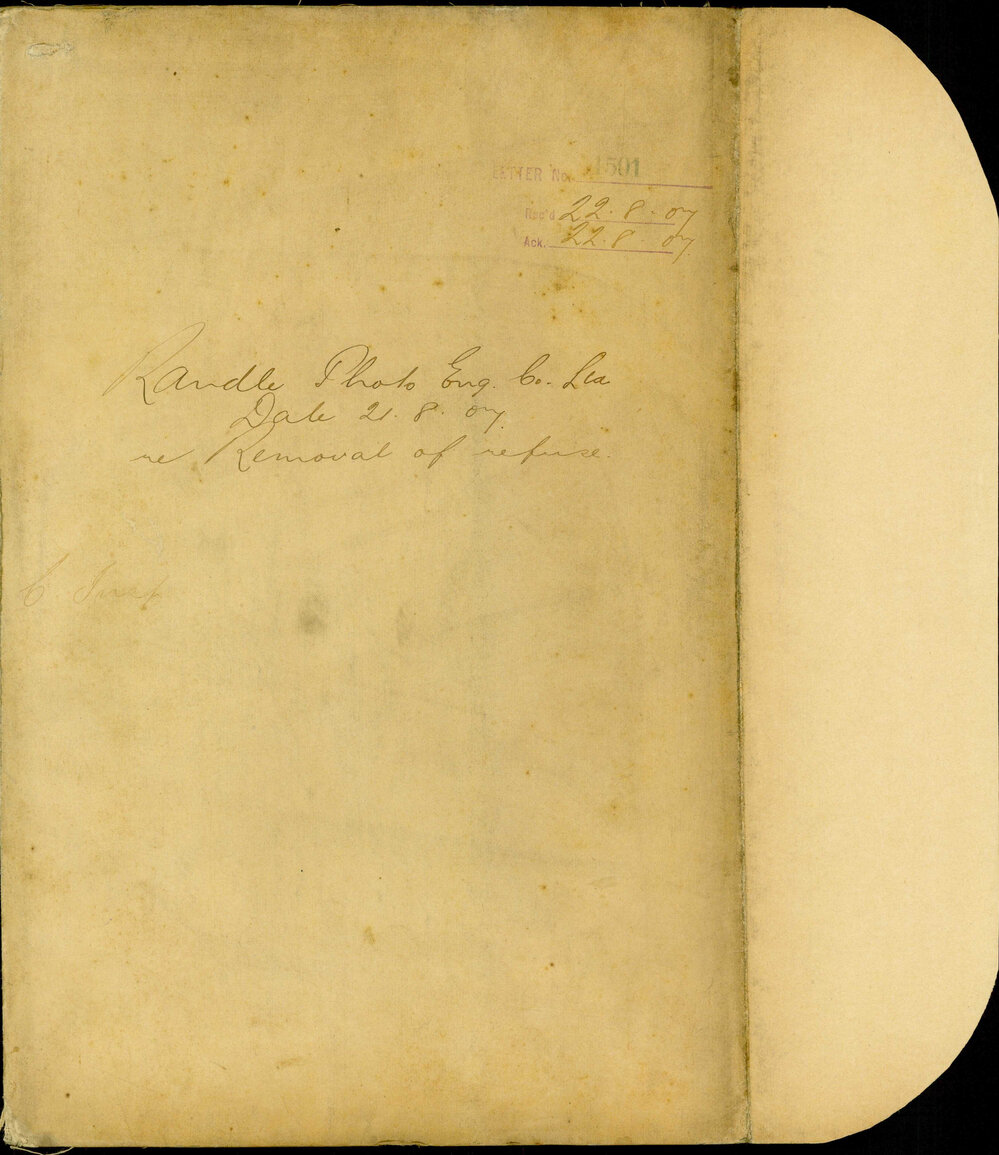 LETTER No. 1501
Rec'd 22.8.07
Ack. 22.8.07.
Randle Photo Eng. Co. Ltd
Date 21.8.07.
re Removal of refuse.
C. Insp